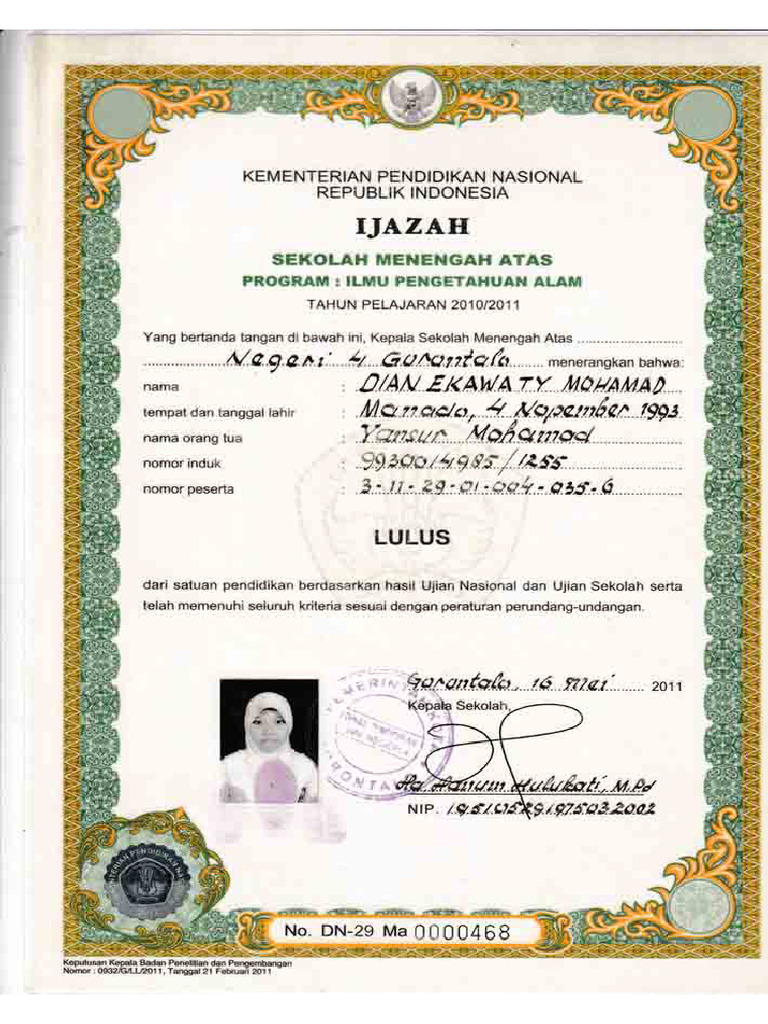 KEMENTERIAN PENDIDIKAN NASIONAL
REPUBLIK INDONESIA
IJAZAH
SEKOLAH MENENGAH ATAS
PROGRAM : ILMU PENGETAHUAN ALAM
TAHUN PELAJARAN 2010/2011
Yang bertanda tangan di bawah ini, Kepala Sekolah Menengah Atas
Negeri 4 Gorontalo menerangkan bahwa:
nama : DIAN EKAWATY MOHAMAD
tempat dan tanggal lahir : Manado, 4 Nopember 1993
nama orang tua : Yansur Mohamad
nomor induk : 9930014985/1255
nomor peserta : 3-11-29-01-004-035-6
LULUS
dari satuan pendidikan berdasarkan hasil Ujian Nasional dan Ujian Sekolah serta
telah memenuhi seluruh kriteria sesuai dengan peraturan perundang-undangan.
Gorontalo, 16 Mei 2011
Kepala Sekolah,
Hulukati, M.Pd
NIP. 195105291975032002
No. DN-29 Ma 0000468
Keputusan Kepala Badan Penelitian dan Pengembangan
Nomor : 0932/G/LL/2011, Tanggal 21 Februari 2011